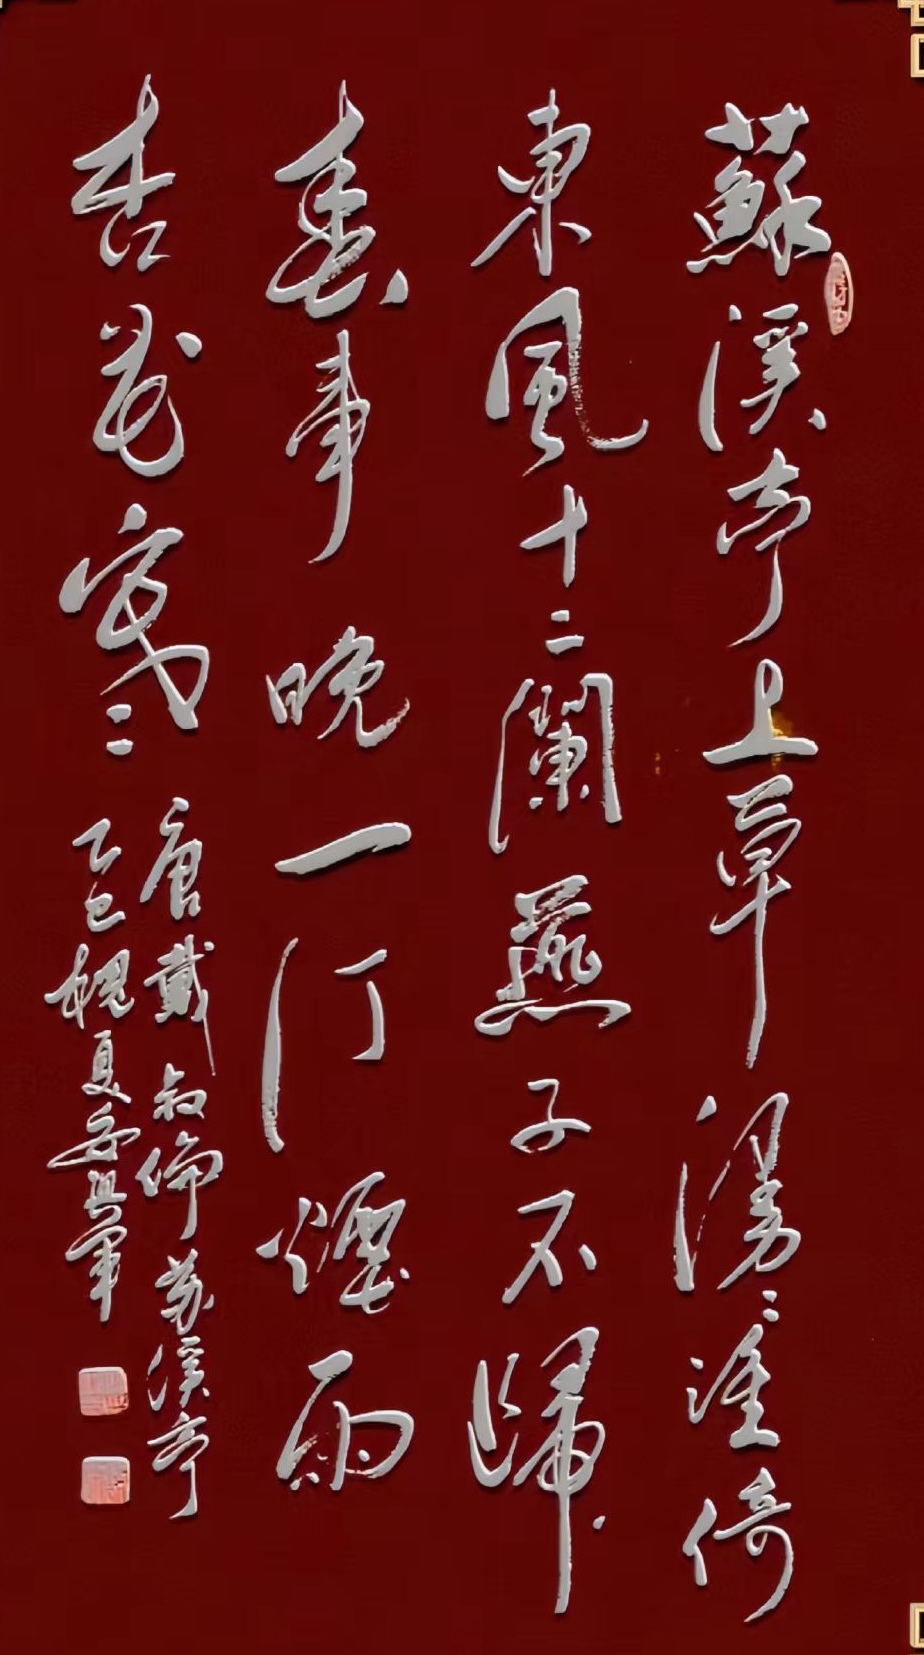 蘇溪亭上草漫〻誰倚
東風十二闌燕子不歸
春事晚一汀煙雨
杏花寒〻
唐戴叔倫蘇溪亭
乙巳槐夏